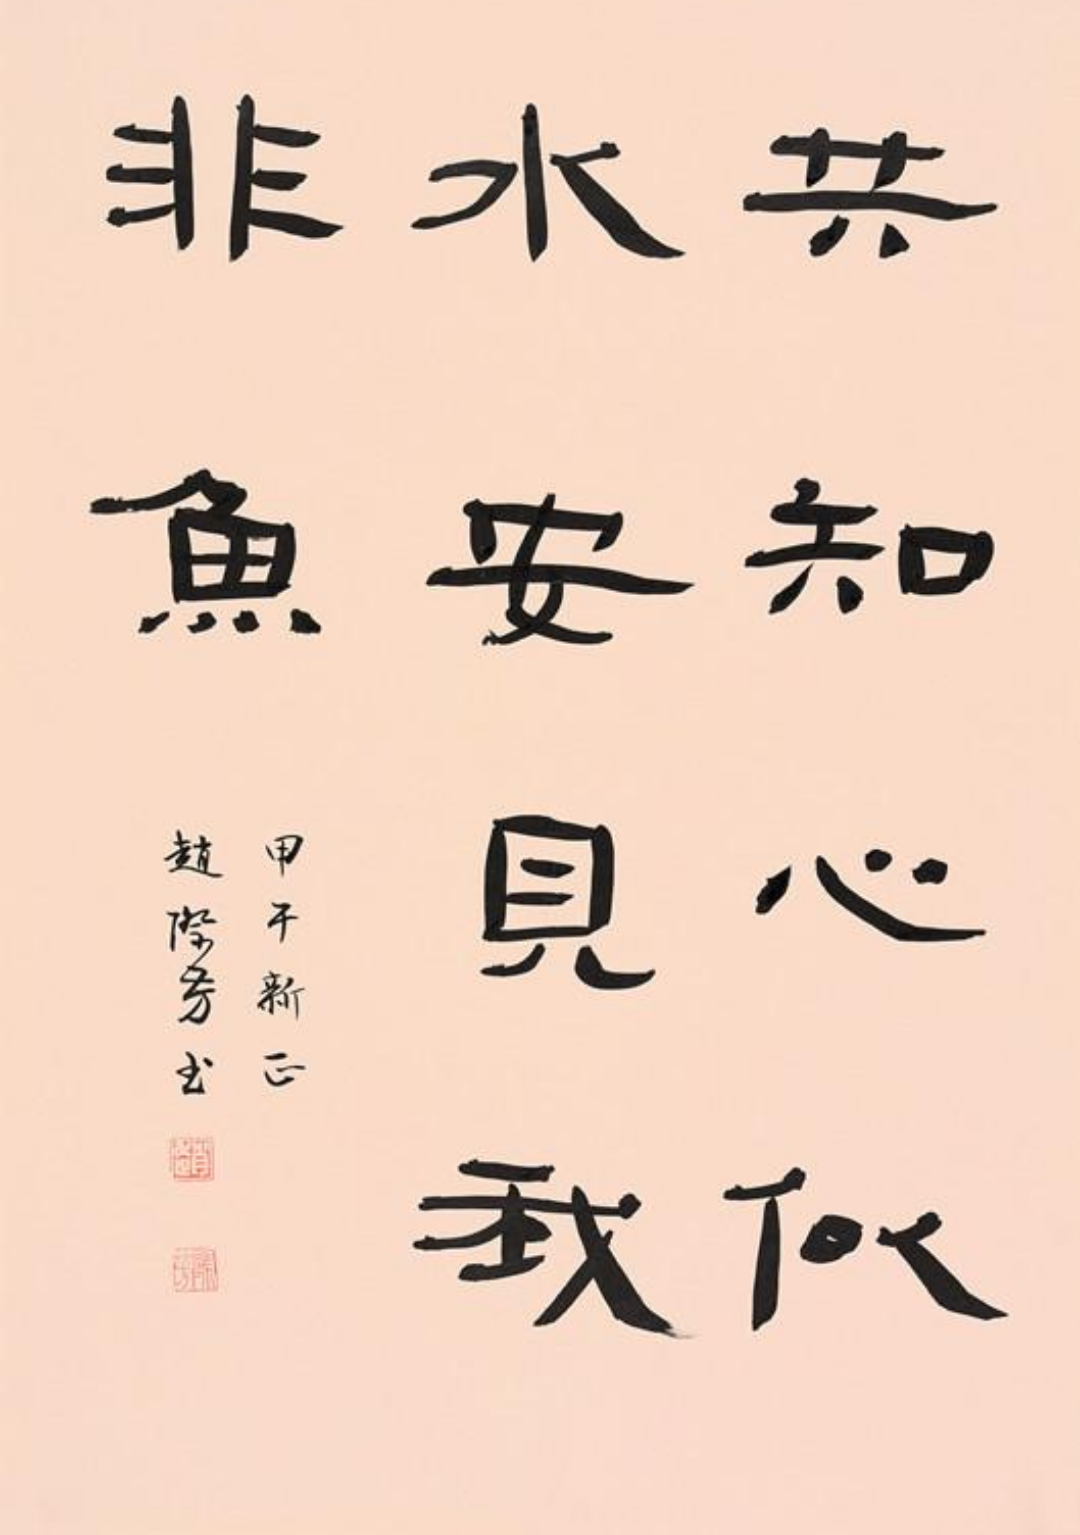 共知心似
水安見我
非魚
甲午新正
趙際芳书